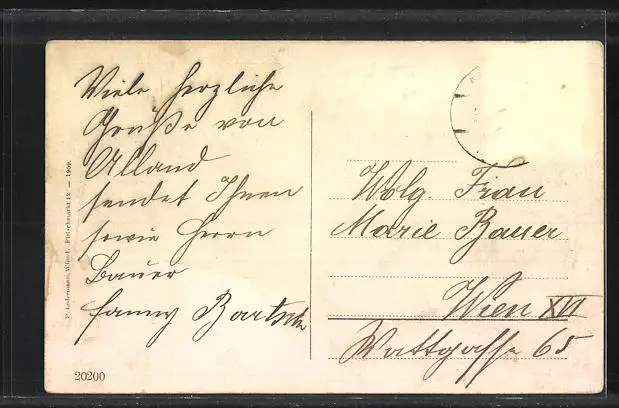 Viele herzliche
Grüße von
Alland
sendet Ihnen
sowie Herrn
Bauer
Fanny Bartsch
Wolg. Frau
Marie Bauer
Wien XVI
Wattgasse 65
P. Ledermann, Wien I., Fleischmarkt 12. — 1909.
20200